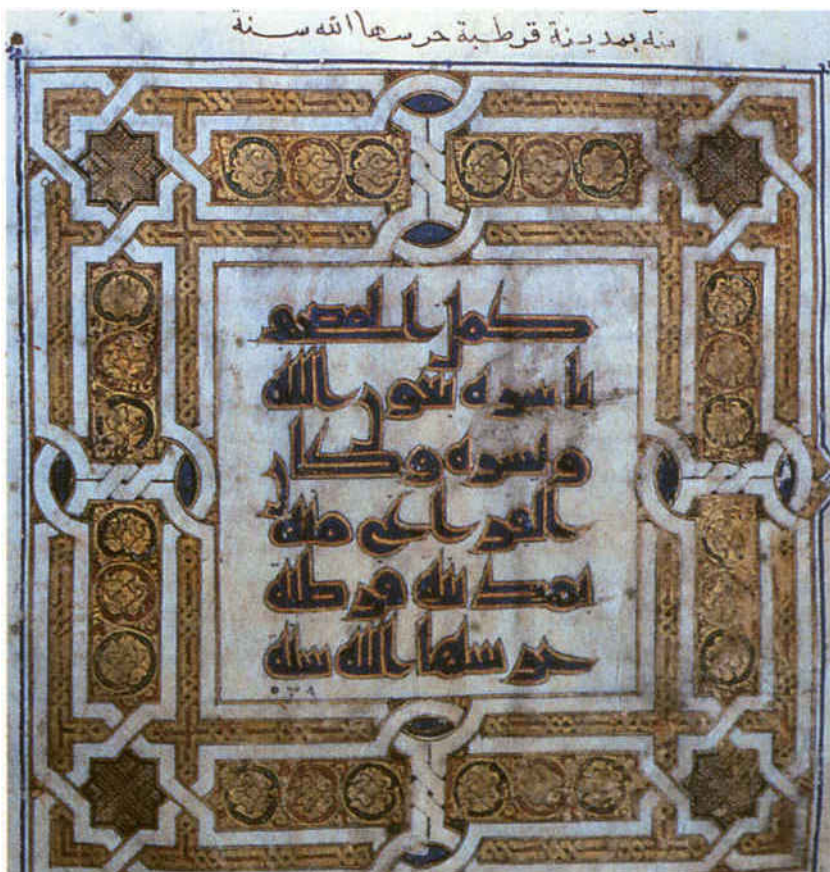 منه بمدينة قرطبة حرسها الله سنة
كمل المصحف
باسره بعون الله
ويسره وكان
الفراغ منه
بمدينة قرطبة
حرسها الله سنة
٥٣٨